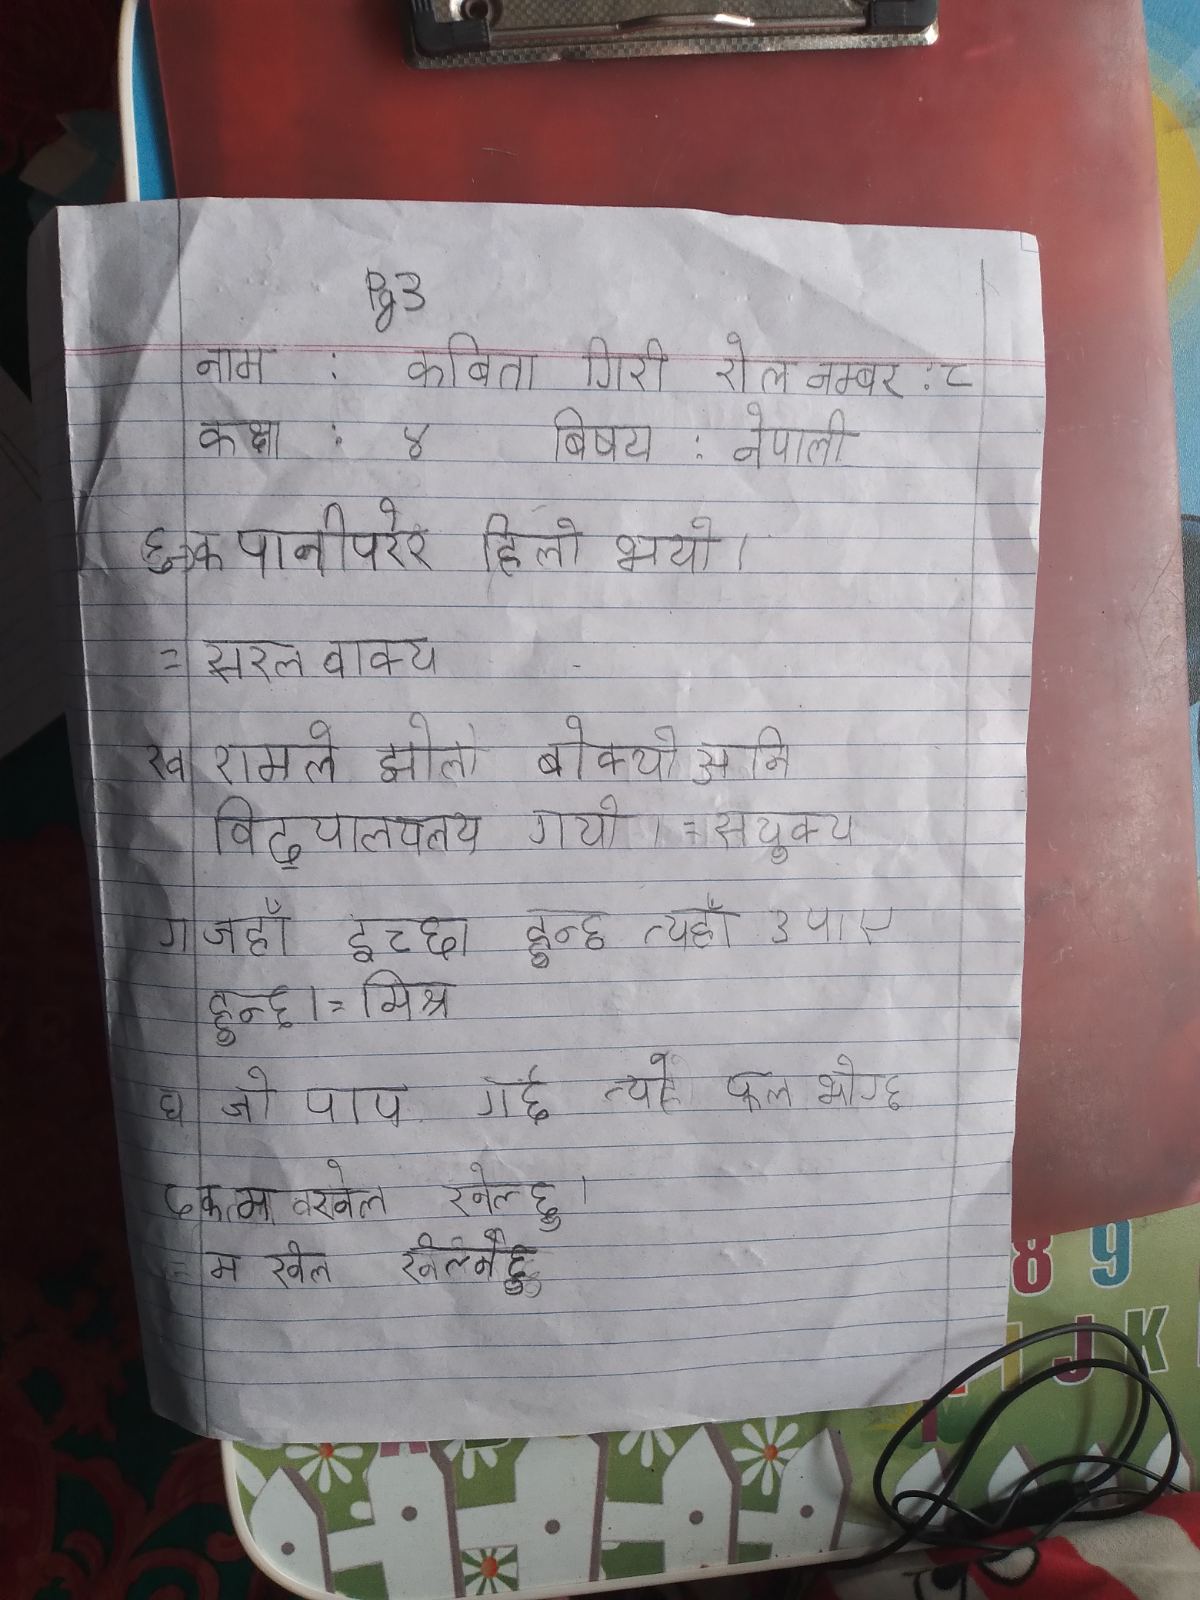 Pg3
नाम : कबिता गिरी रोल नम्बर : ८
कक्षा : ४ बिषय : नेपाली
क पानीपरेर हिलो भयो ।
= सरल वाक्य
ख रामले झोला बोक्यो अनि
विद्यालयलय गयो । = सयुक्य
ग जहाँ इच्छा हुन्छ त्यहाँ उपाए
हुन्छ । = मिश्र
घ जो पाप गर्छ त्यहे फल भोग्छ
खेल्छु ।
= म खेल खेल्नेछु
8 9
I J K